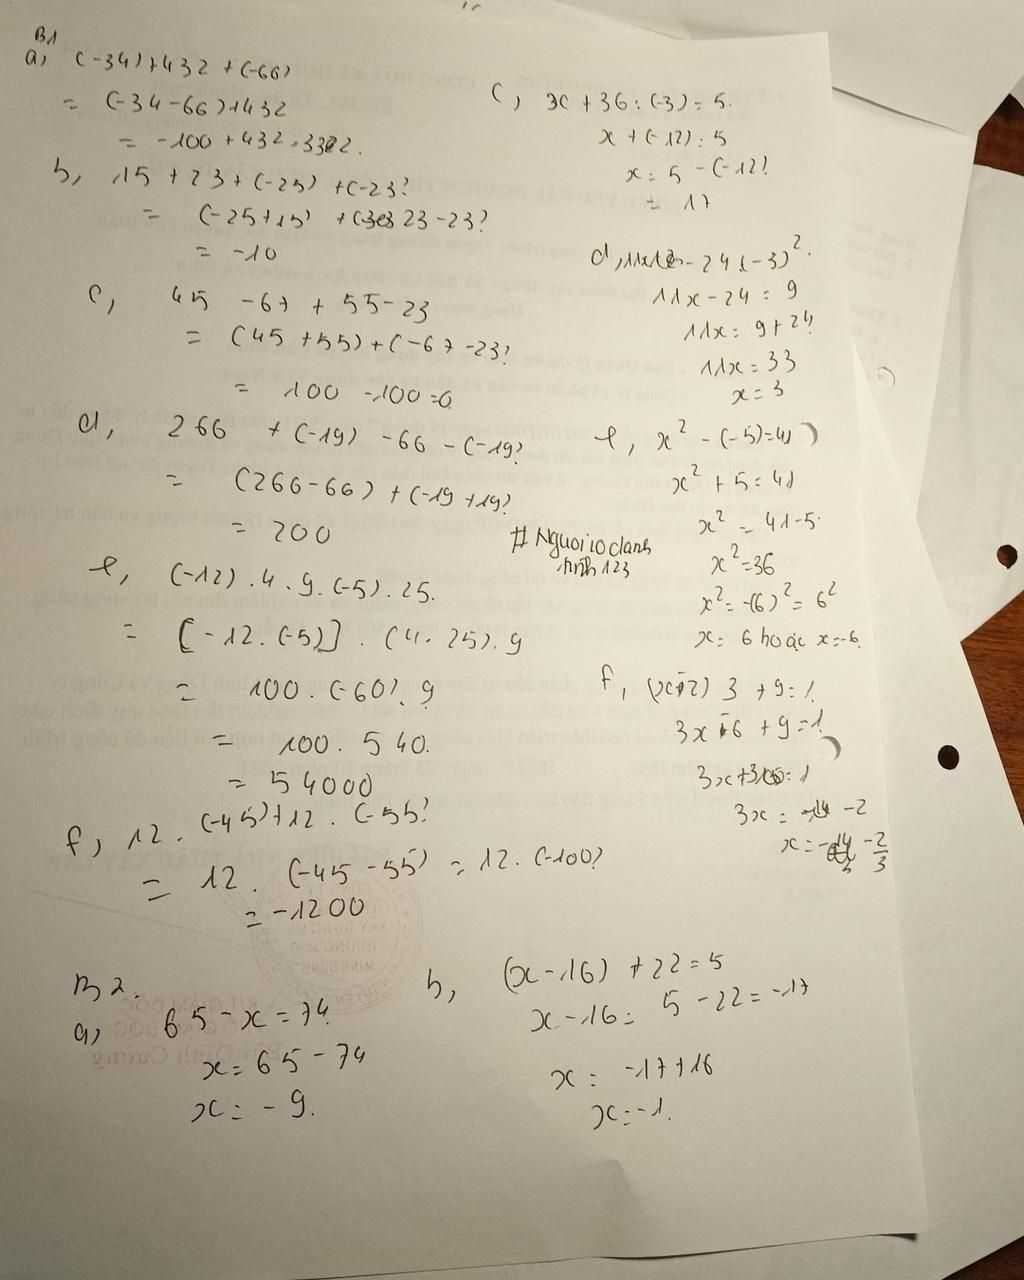 B1
a, (-34)+432 + (-66)
= (-34-66)+432
= -100 + 432 = 332.
b, 15 + 23 + (-25) + (-23)
= (-25+15) + (23-23)
= -10
c, 45 - 67 + 55 - 23
= (45 + 55) + (-67 - 23)
= 100 - 100 = 0
d, 266 + (-19) - 66 - (-19)
= (266-66) + (-19 + 19)
= 200
e, (-12) . 4 . 9 . (-5) . 25.
= [-12. (-5)] . (4. 25). 9
= 100. (-60). 9
= 100. 540.
= 54000
f, 12 . (-45)+12 . (-55)
= 12. (-45-55) = 12. (-100)
= -1200
B2.
a, 65 - x = 74
x = 65 - 74
x = - 9.
b, (x-16) + 22 = 5
x - 16 = 5 - 22 = -17
x = -17+16
x = -1.
c, x + 36 : (-3) = 5.
x + (-12) = 5
x = 5 - (-12)
= 17
- 24 (-3)²
11x - 24 = 9
11x = 9 + 24
11x = 33
x = 3
e, x² - (-5) = 41
x² + 5 = 41
x² = 41-5.
x² = 36
x² = -(6)² = 6²
x = 6 hoặc x = -6.
#Nguoiodanh
tinh 123
f, (x-2) 3 + 9 = 1
3x - 6 + 9 = 1
3x + 3 = 1
3x = -2
x = -2/3